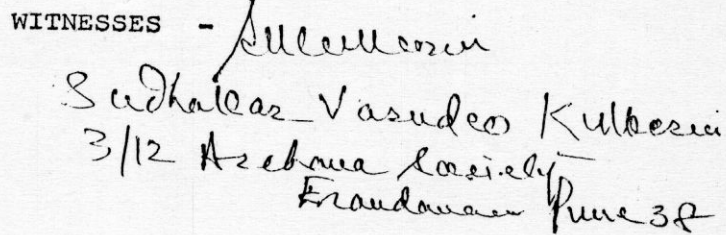 WITNESSES -
Sudhakar Vasudeo Kulkarni
3/12 Archana Society
Erandawane Pune 38